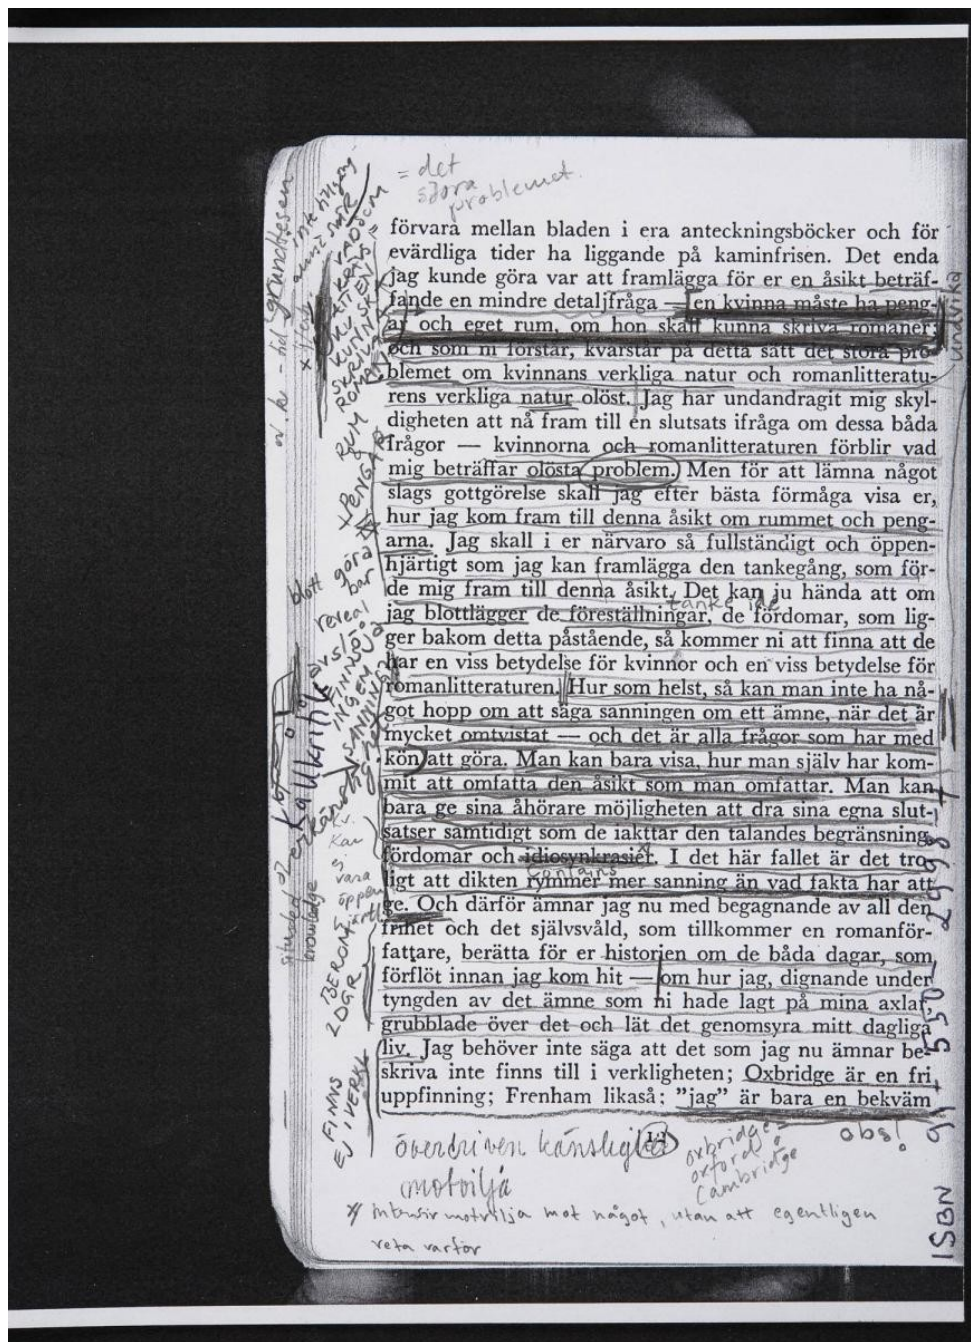 = det
stora
problemet.
förvara mellan bladen i era anteckningsböcker och för
evärdliga tider ha liggande på kaminfrisen. Det enda
jag kunde göra var att framlägga för er en åsikt beträf-
fande en mindre detaljfråga — en kvinna måste ha peng-
ar och eget rum, om hon skall kunna skriva romaner;
och som ni förstår, kvarstår på detta sätt det stora pro-
blemet om kvinnans verkliga natur och romanlitteratu-
rens verkliga natur olöst. Jag har undandragit mig skyl-
digheten att nå fram till en slutsats ifråga om dessa båda
frågor — kvinnorna och romanlitteraturen förblir vad
mig beträffar olösta problem. Men för att lämna något
slags gottgörelse skall jag efter bästa förmåga visa er,
hur jag kom fram till denna åsikt om rummet och peng-
arna. Jag skall i er närvaro så fullständigt och öppen-
hjärtigt som jag kan framlägga den tankegång, som för-
de mig fram till denna åsikt. Det kan ju hända att om
jag blottlägger de föreställningar, de fördomar, som lig-
ger bakom detta påstående, så kommer ni att finna att de
har en viss betydelse för kvinnor och en viss betydelse för
romanlitteraturen. Hur som helst, så kan man inte ha nå-
got hopp om att säga sanningen om ett ämne, när det är
mycket omtvistat — och det är alla frågor som har med
kön att göra. Man kan bara visa, hur man själv har kom-
mit att omfatta den åsikt som man omfattar. Man kan
bara ge sina åhörare möjligheten att dra sina egna slut-
satser samtidigt som de iakttar den talandes begränsning,
fördomar och idiosynkrasier. I det här fallet är det tro-
contains
ligt att dikten rymmer mer sanning än vad fakta har att
ge. Och därför ämnar jag nu med begagnande av all den
frihet och det självsvåld, som tillkommer en romanför-
fattare, berätta för er historien om de båda dagar, som
förflöt innan jag kom hit — om hur jag, dignande under
tyngden av det ämne som ni hade lagt på mina axlar,
grubblade över det och lät det genomsyra mitt dagliga
liv. Jag behöver inte säga att det som jag nu ämnar be-
skriva inte finns till i verkligheten; Oxbridge är en fri
uppfinning; Frenham likaså; ”jag” är bara en bekväm
12
överdriven känslighet
motvilja
oxbridge =
oxford &
Cambridge
obs!
intensiv motvilja mot något, utan att egentligen
veta varför
undvika
RUM
& PENGAR
blott
göra
bar
reveal
avslöja
FINNS
INGEN
SANNING
situated
knowledge
kan
ej
vara
öppen
BEROM
2 DGR
FINNS
EJ I VERKL
ISBN 91-550-2998-7